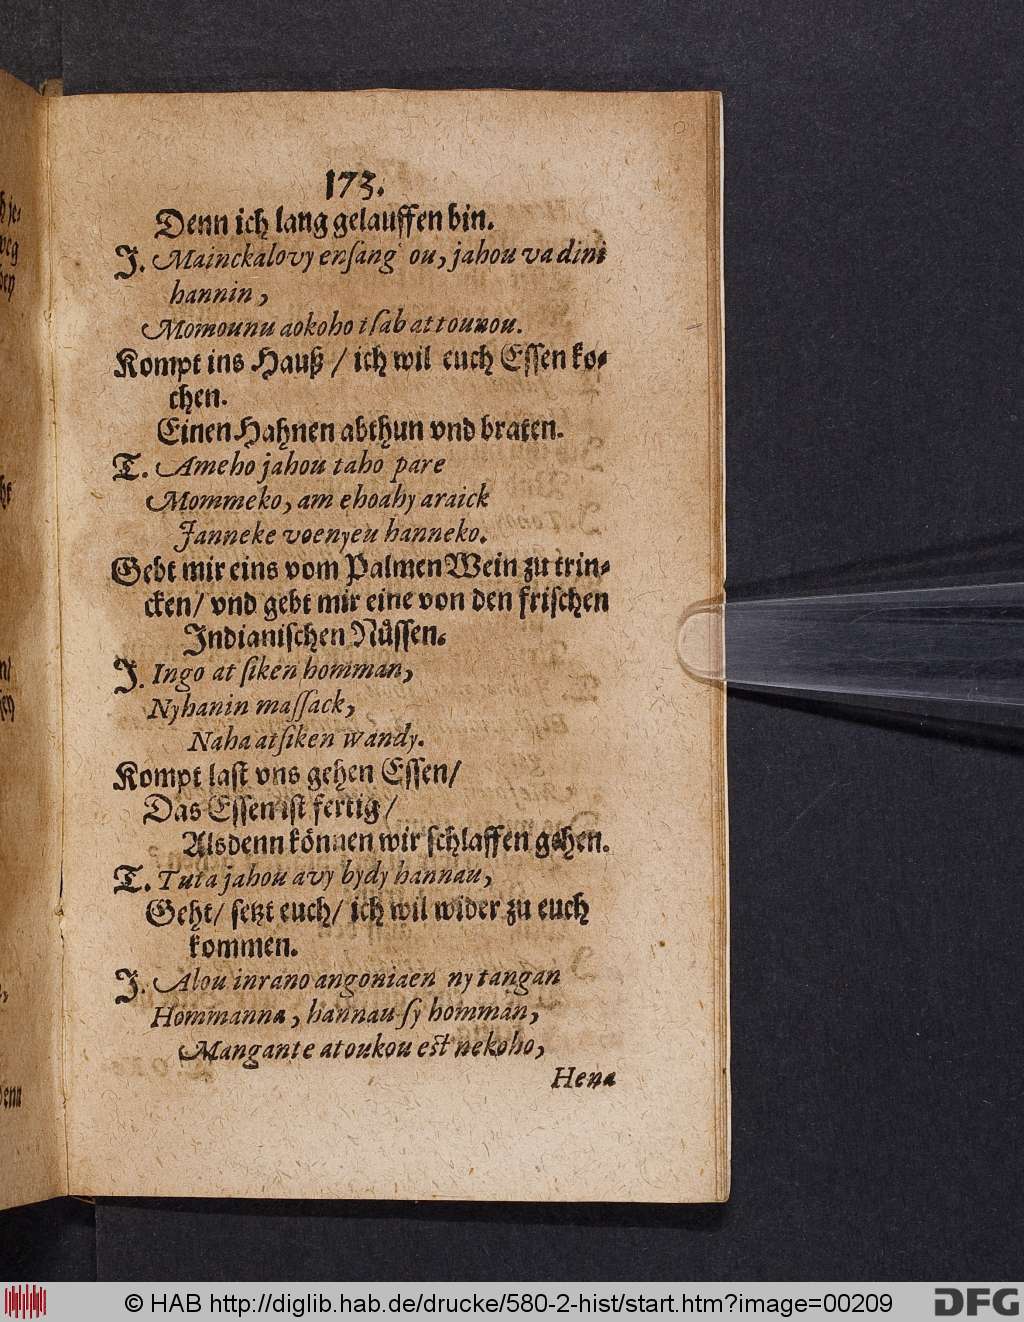 173.
Denn ich lang gelauffen bin.
J. Mainckalovy ensang ou, jahou va dini
hannin,
Momounu aokoho tsab attounou.
Kompt ins Hauß / ich wil euch Essen ko-
chen.
Einen Hahnen abthun vnd braten.
T. Ameho jahou taho pare
Mommeko, am ehoahy araick
Janneke voenyeu hanneko.
Gebt mir eins vom Palmen Wein zu trin-
cken/ vnd gebt mir eine von den frischen
Indianischen Nüssen.
J. Ingo at siken homman,
Nyhanin massack,
Naha atsiken wandy.
Kompt last vns gehen Essen/
Das Essen ist fertig/
Alsdenn können wir schlaffen gehen.
T. Tuta jahou avy bydy hannau,
Geht/ setzt euch/ ich wil wider zu euch
kommen.
J. Alou inrano angoniaen ny tangan
Hommanna, hannau sy homman,
Mangante atoukou est nekoho,
Hena
© HAB http://diglib.hab.de/drucke/580-2-hist/start.htm?image=00209
DFG